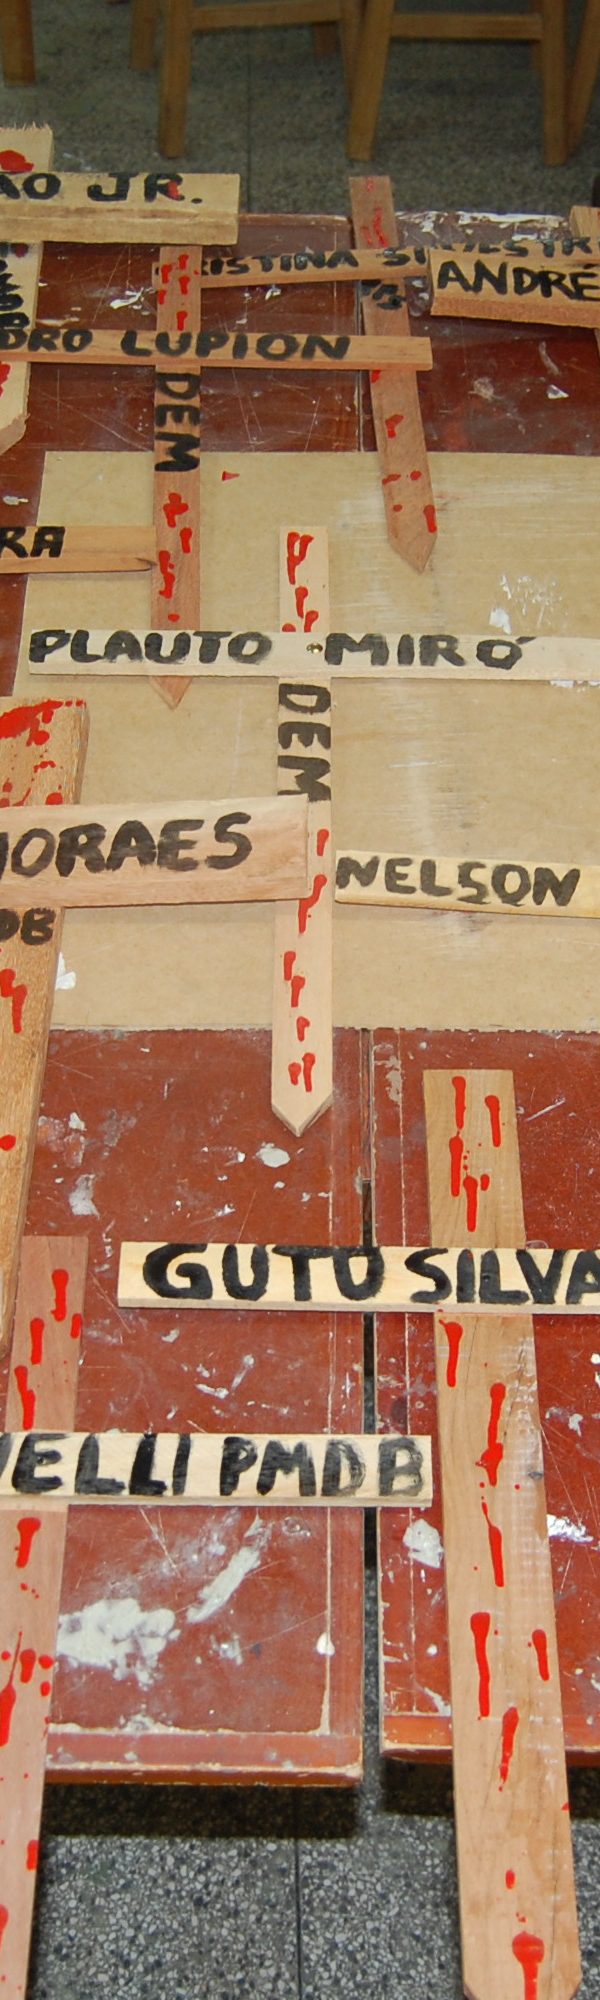 AO JR.
CRISTINA SILVESTRI
ANDRÉ
DRO LUPION
DEM
RA
PLAUTO MIRÓ
DEM
MORAES
NELSON
DB
GUTO SILVA
ELLI PMDB